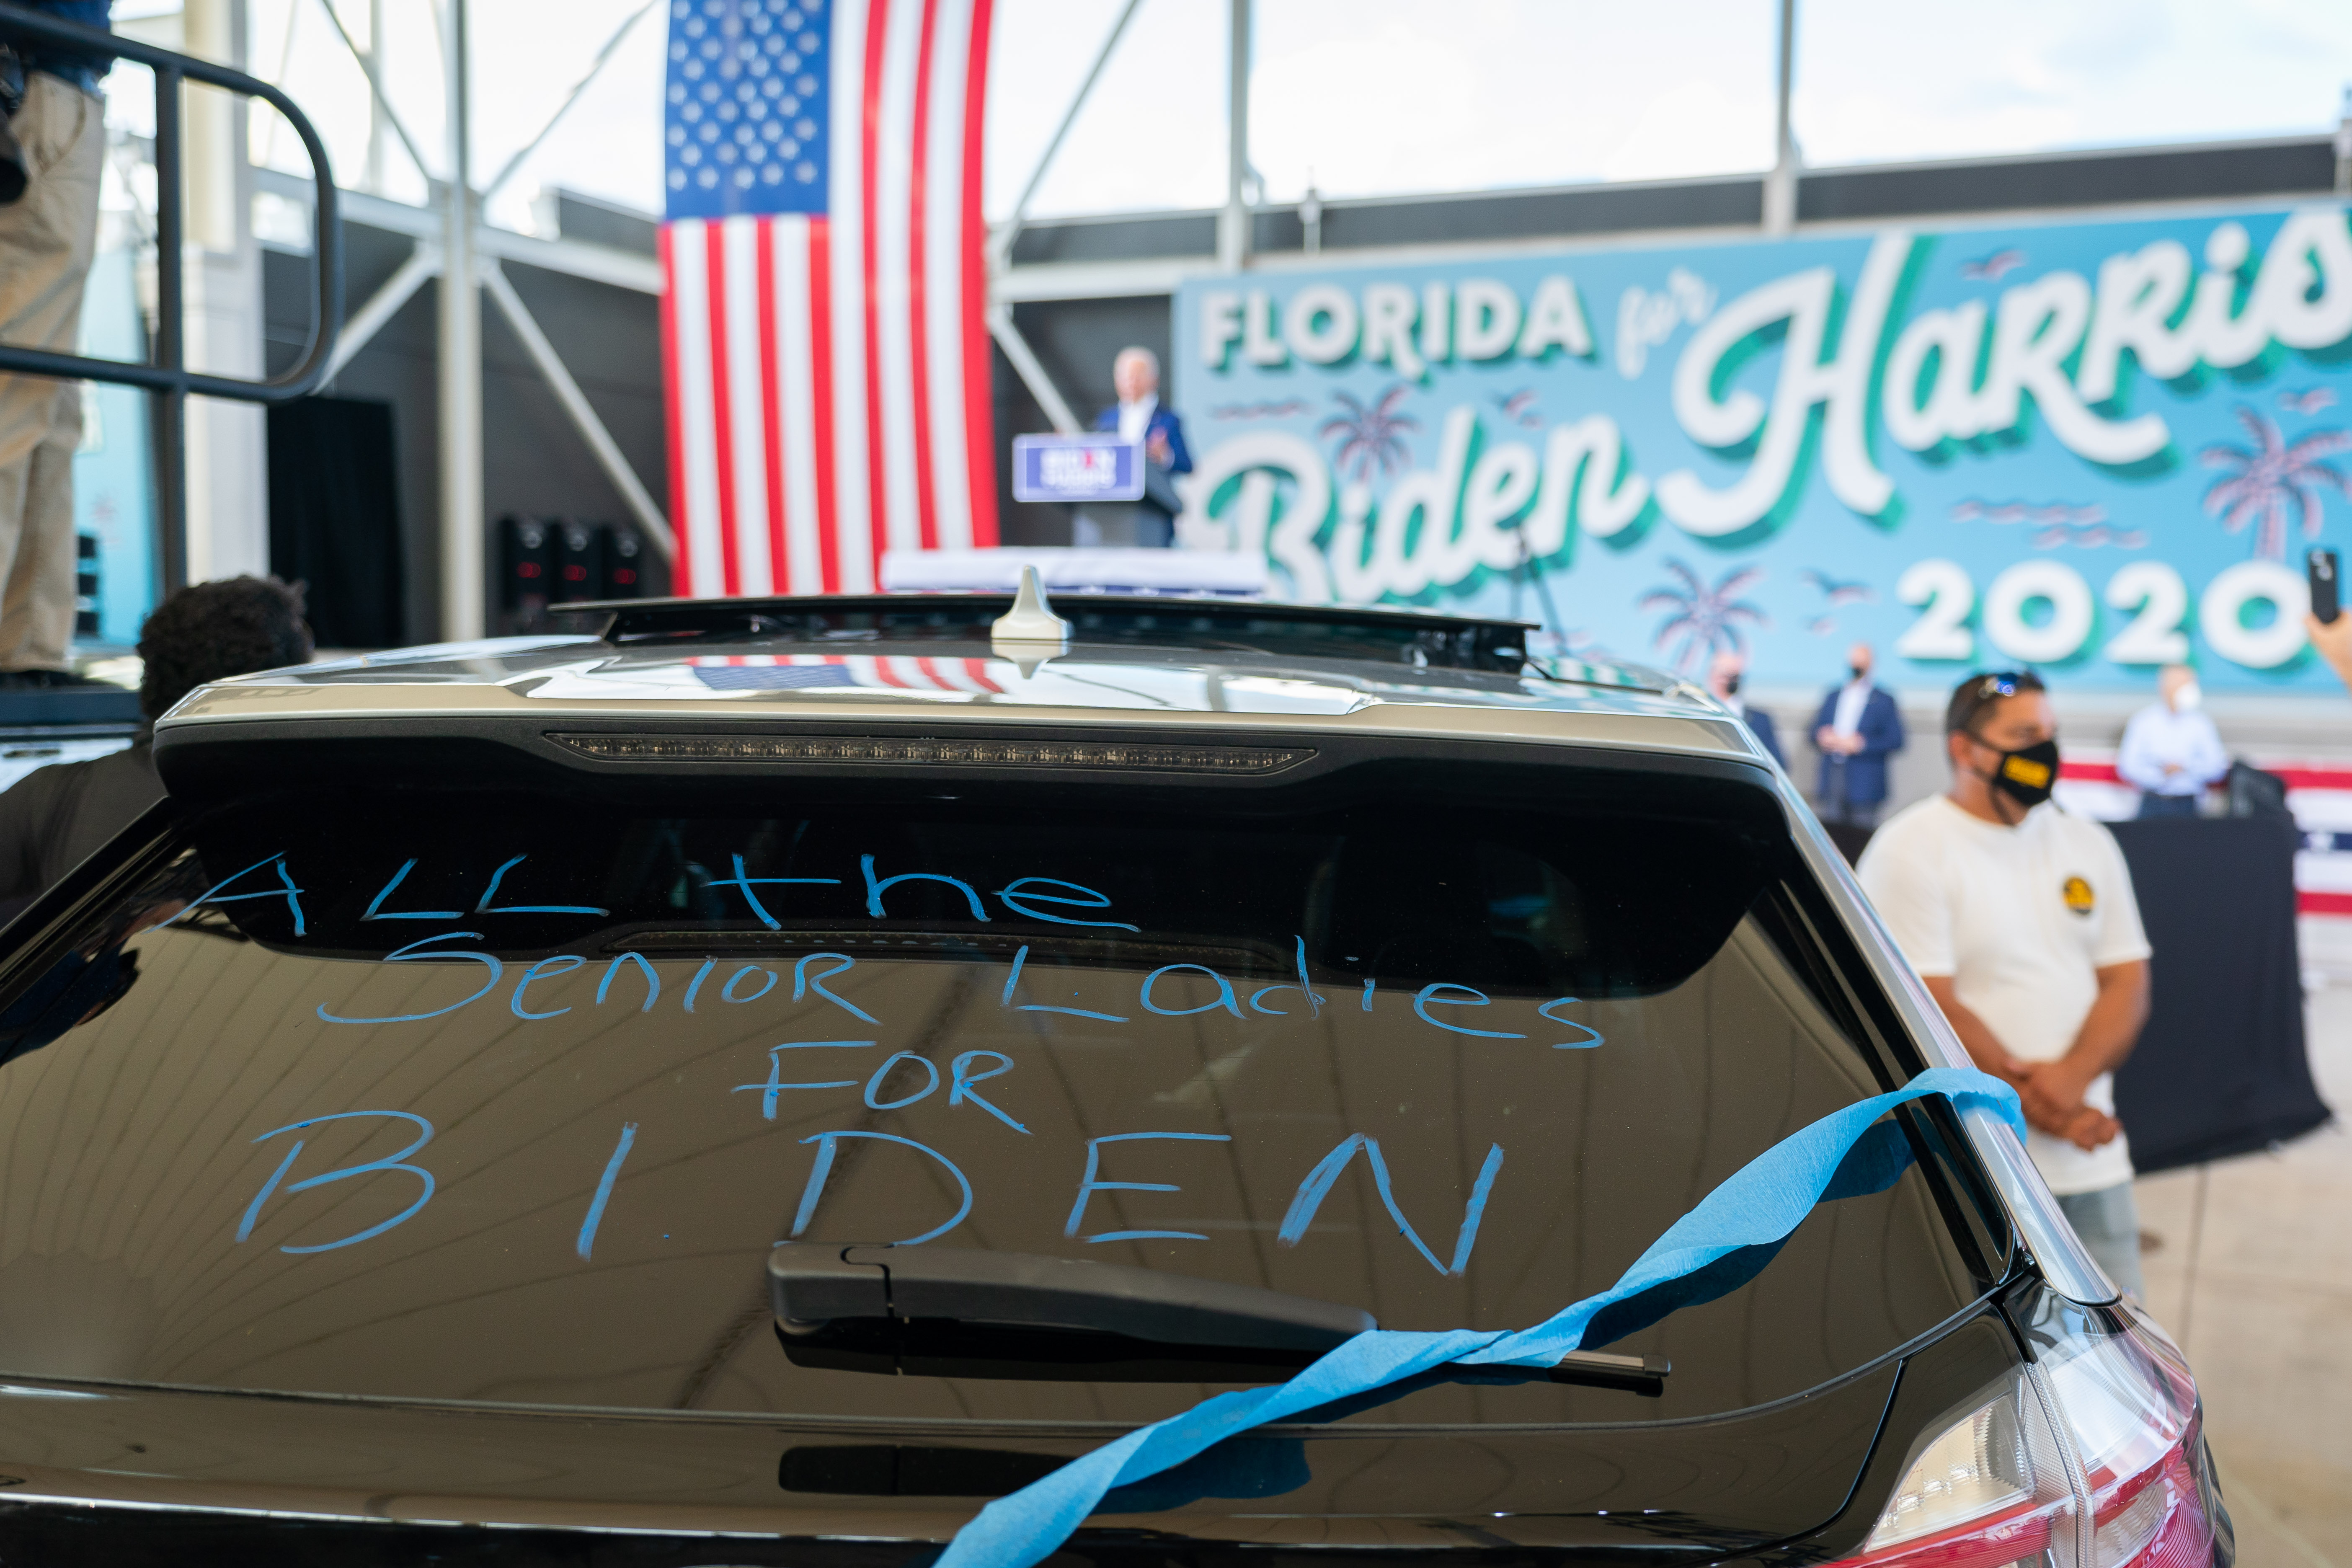 FLORIDA for
Biden Harris
2020
BIDEN
ALL the
Senior Ladies
FOR
BIDEN